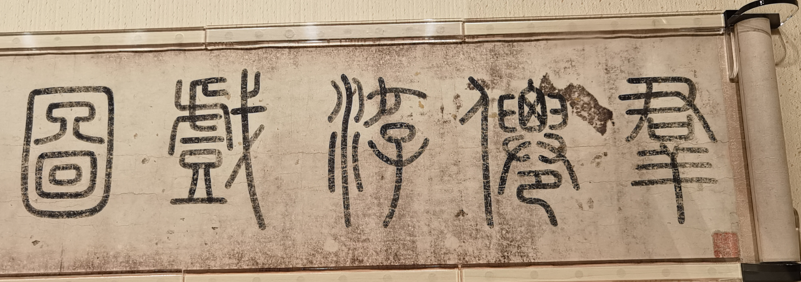 羣僊游戲圖